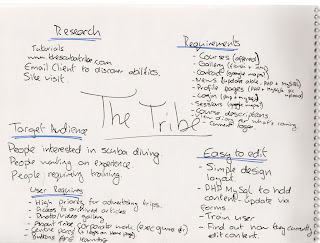 Research
Tutorials
www.thescubatribe.com
Email Client to discover abilities.
Site visit
Requirements
- Courses (offered)
- Gallery
- Contact (google maps)
- News (update able, PHP + MySQL)
- Profile pages (PHP + MySQL
upload)
- Login (PHP + MySQL)
- Sessions
- Course descriptions
- View diary for what's coming.
The Tribe
Target Audience
People interested in scuba diving
People wanting an experience.
People requiring training.
User Requires
- High priority for advertising trips.
- Access to archived articles
- Photo/video gallery
- About Tribe corporate work
- Centre page
- Buttons
Easy to edit
- Simple design
layout
- PHP MySQL to hold
content. update via
forms.
- Train user
- Find out how they currently
edit content.